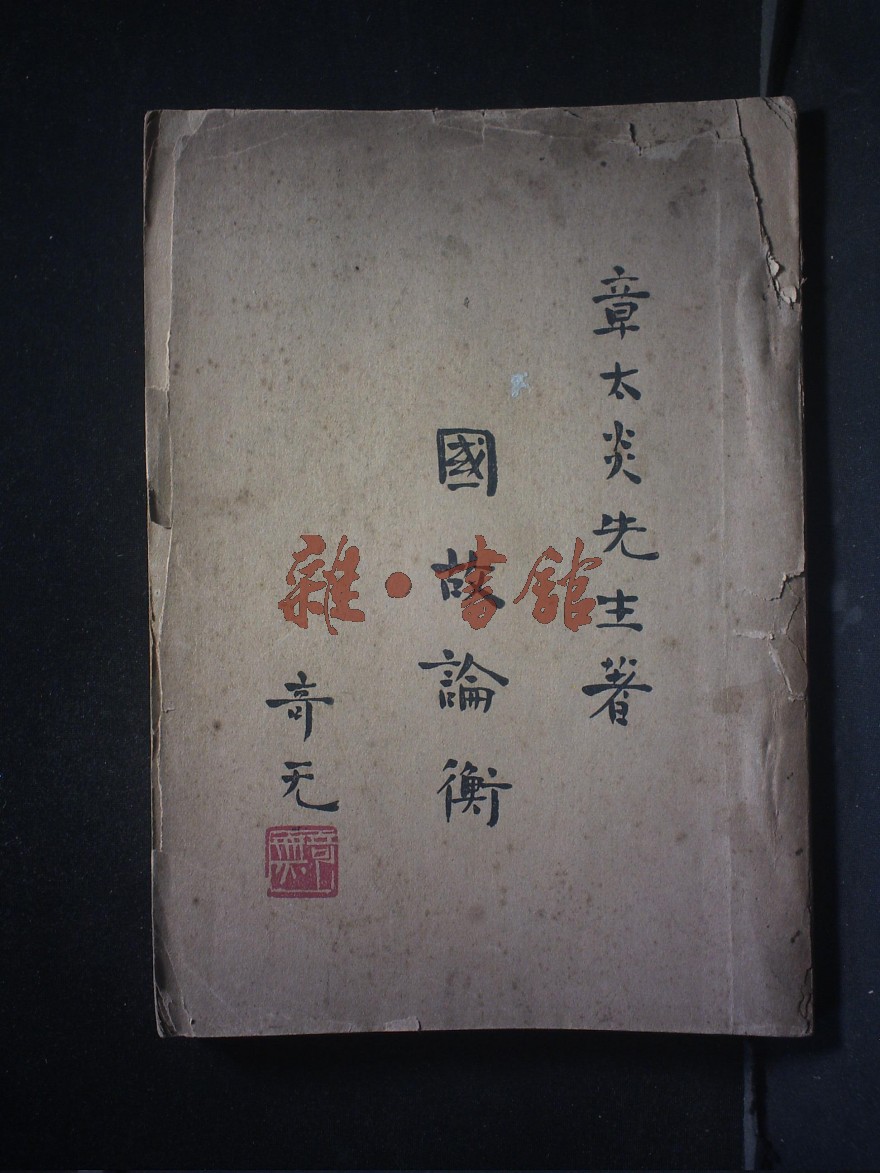 章太炎先生著
國故論衡
奇无
雜·書館